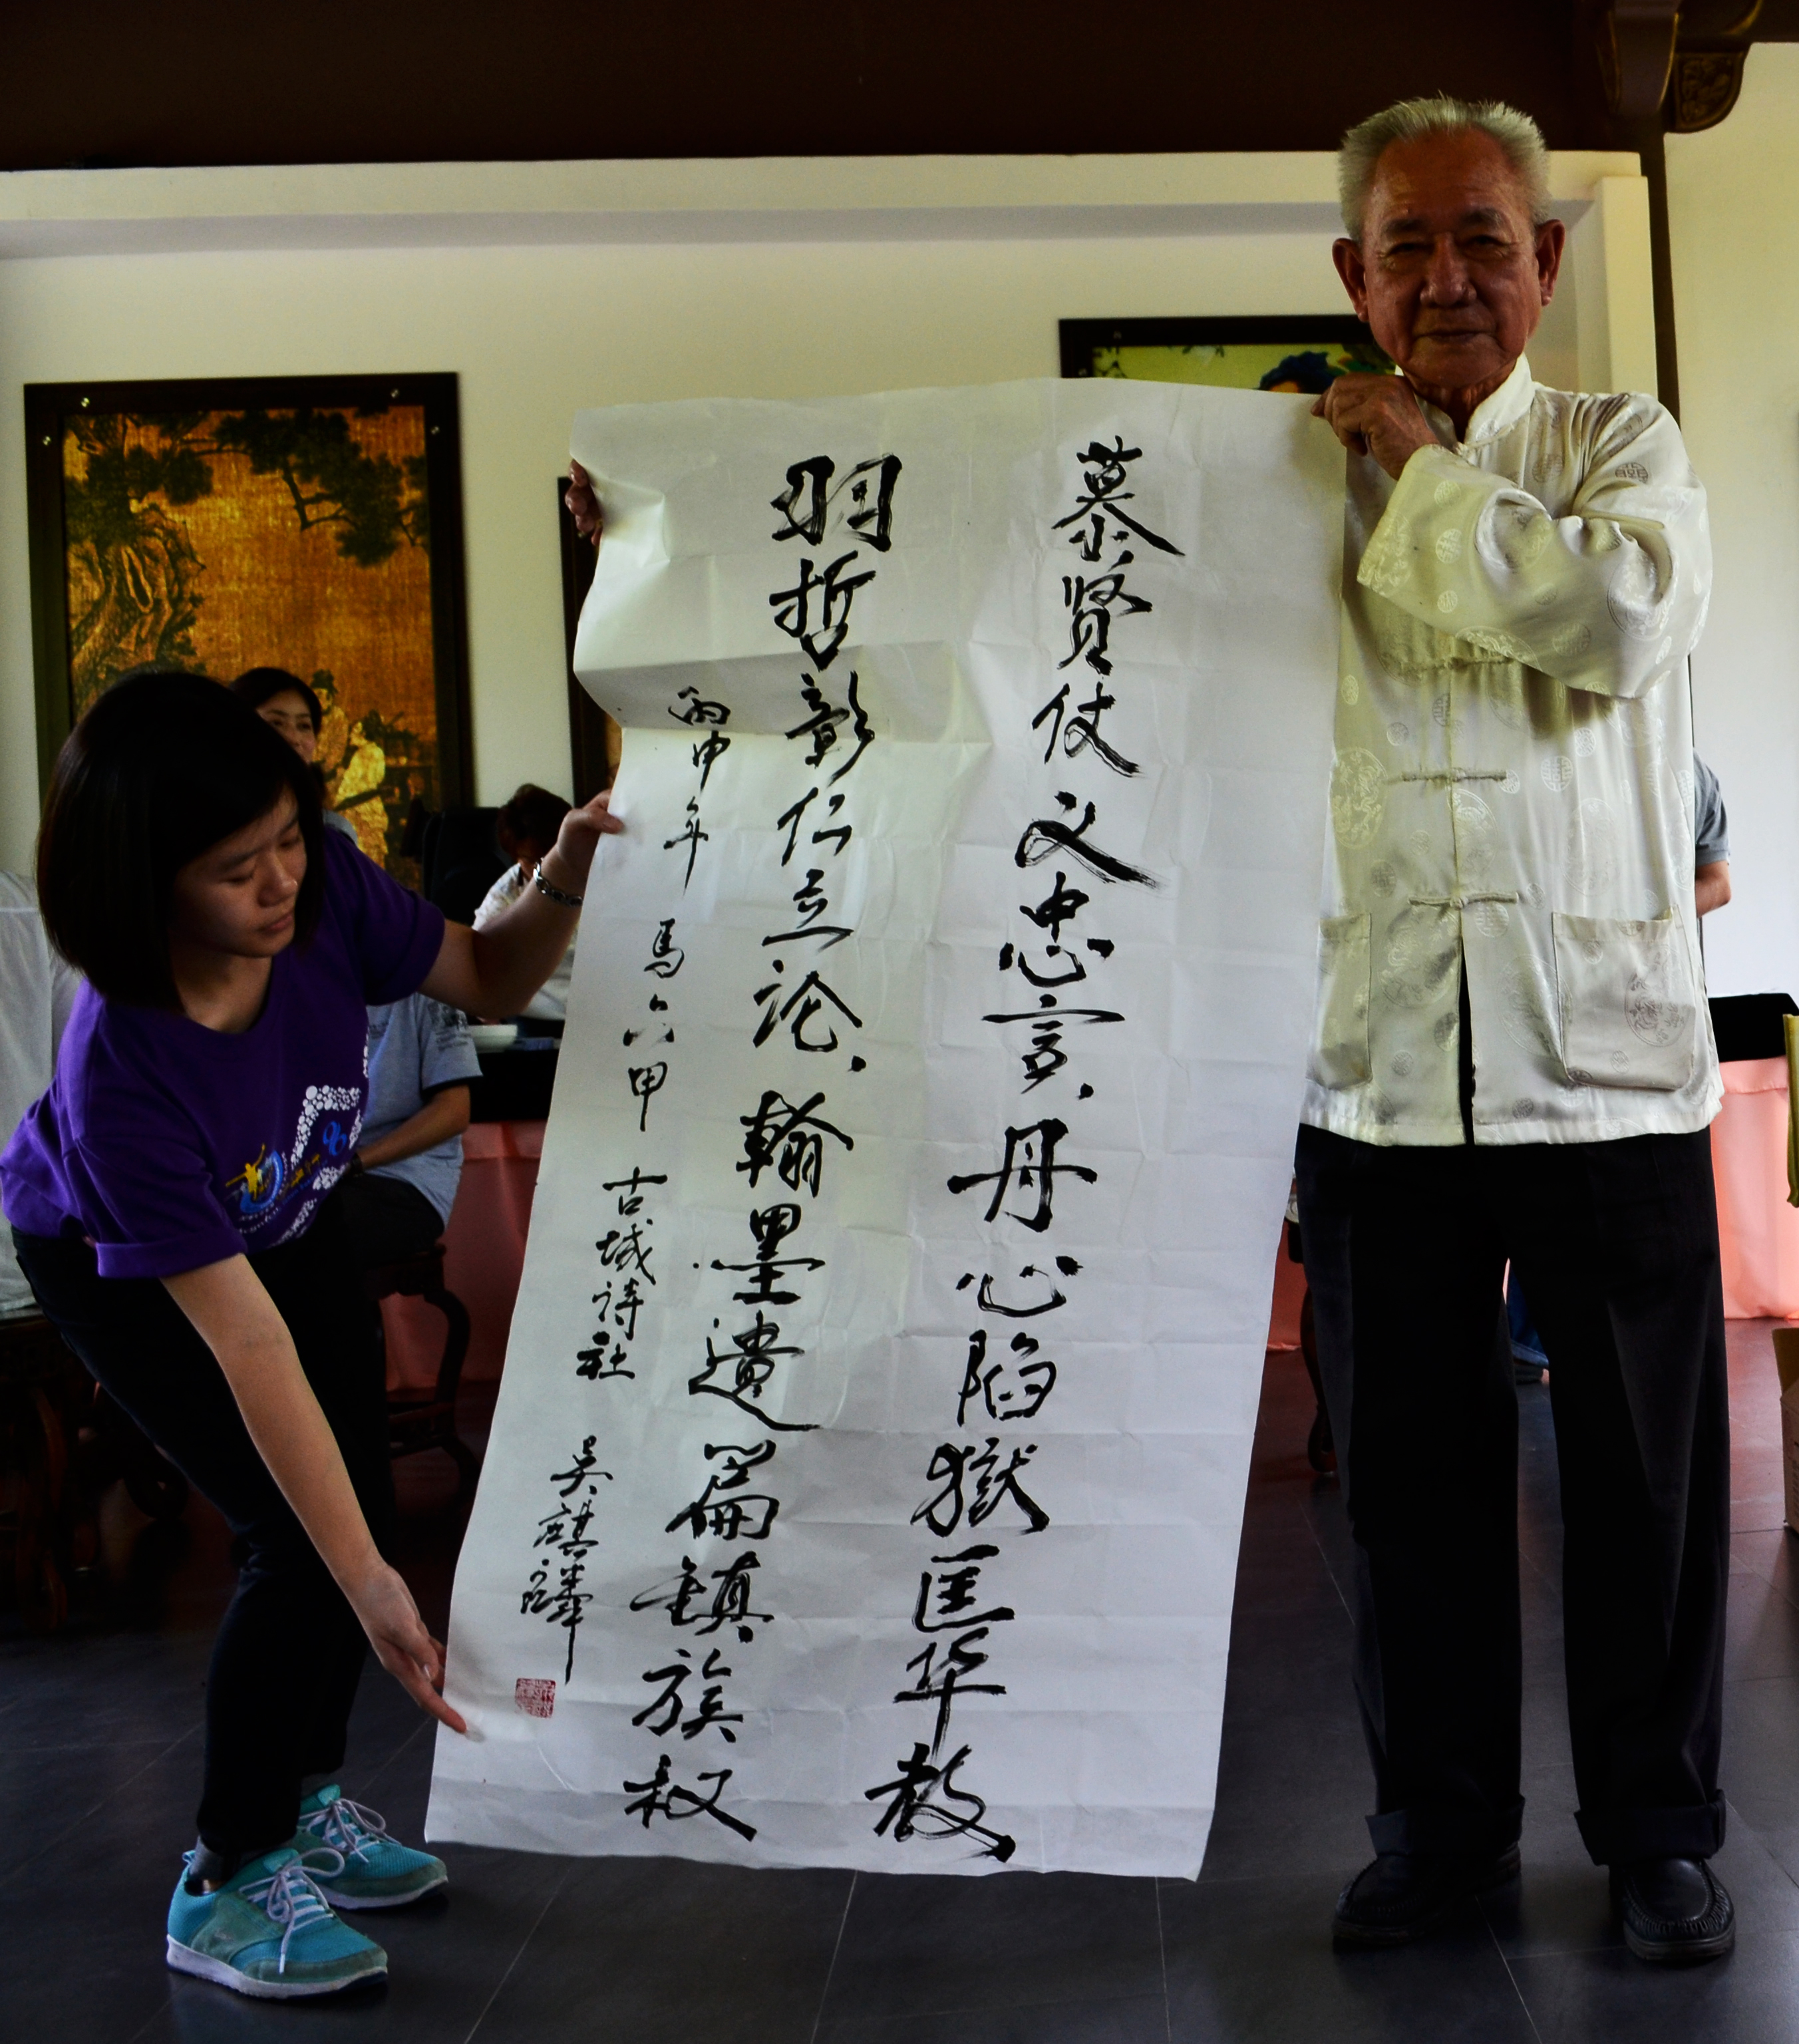 慕贤仗义忠言.丹心陷獄匡华教
羽哲彰仁立论.翰墨遺篇鎮族权
丙申年 馬六甲 古城诗社 吴麒麟